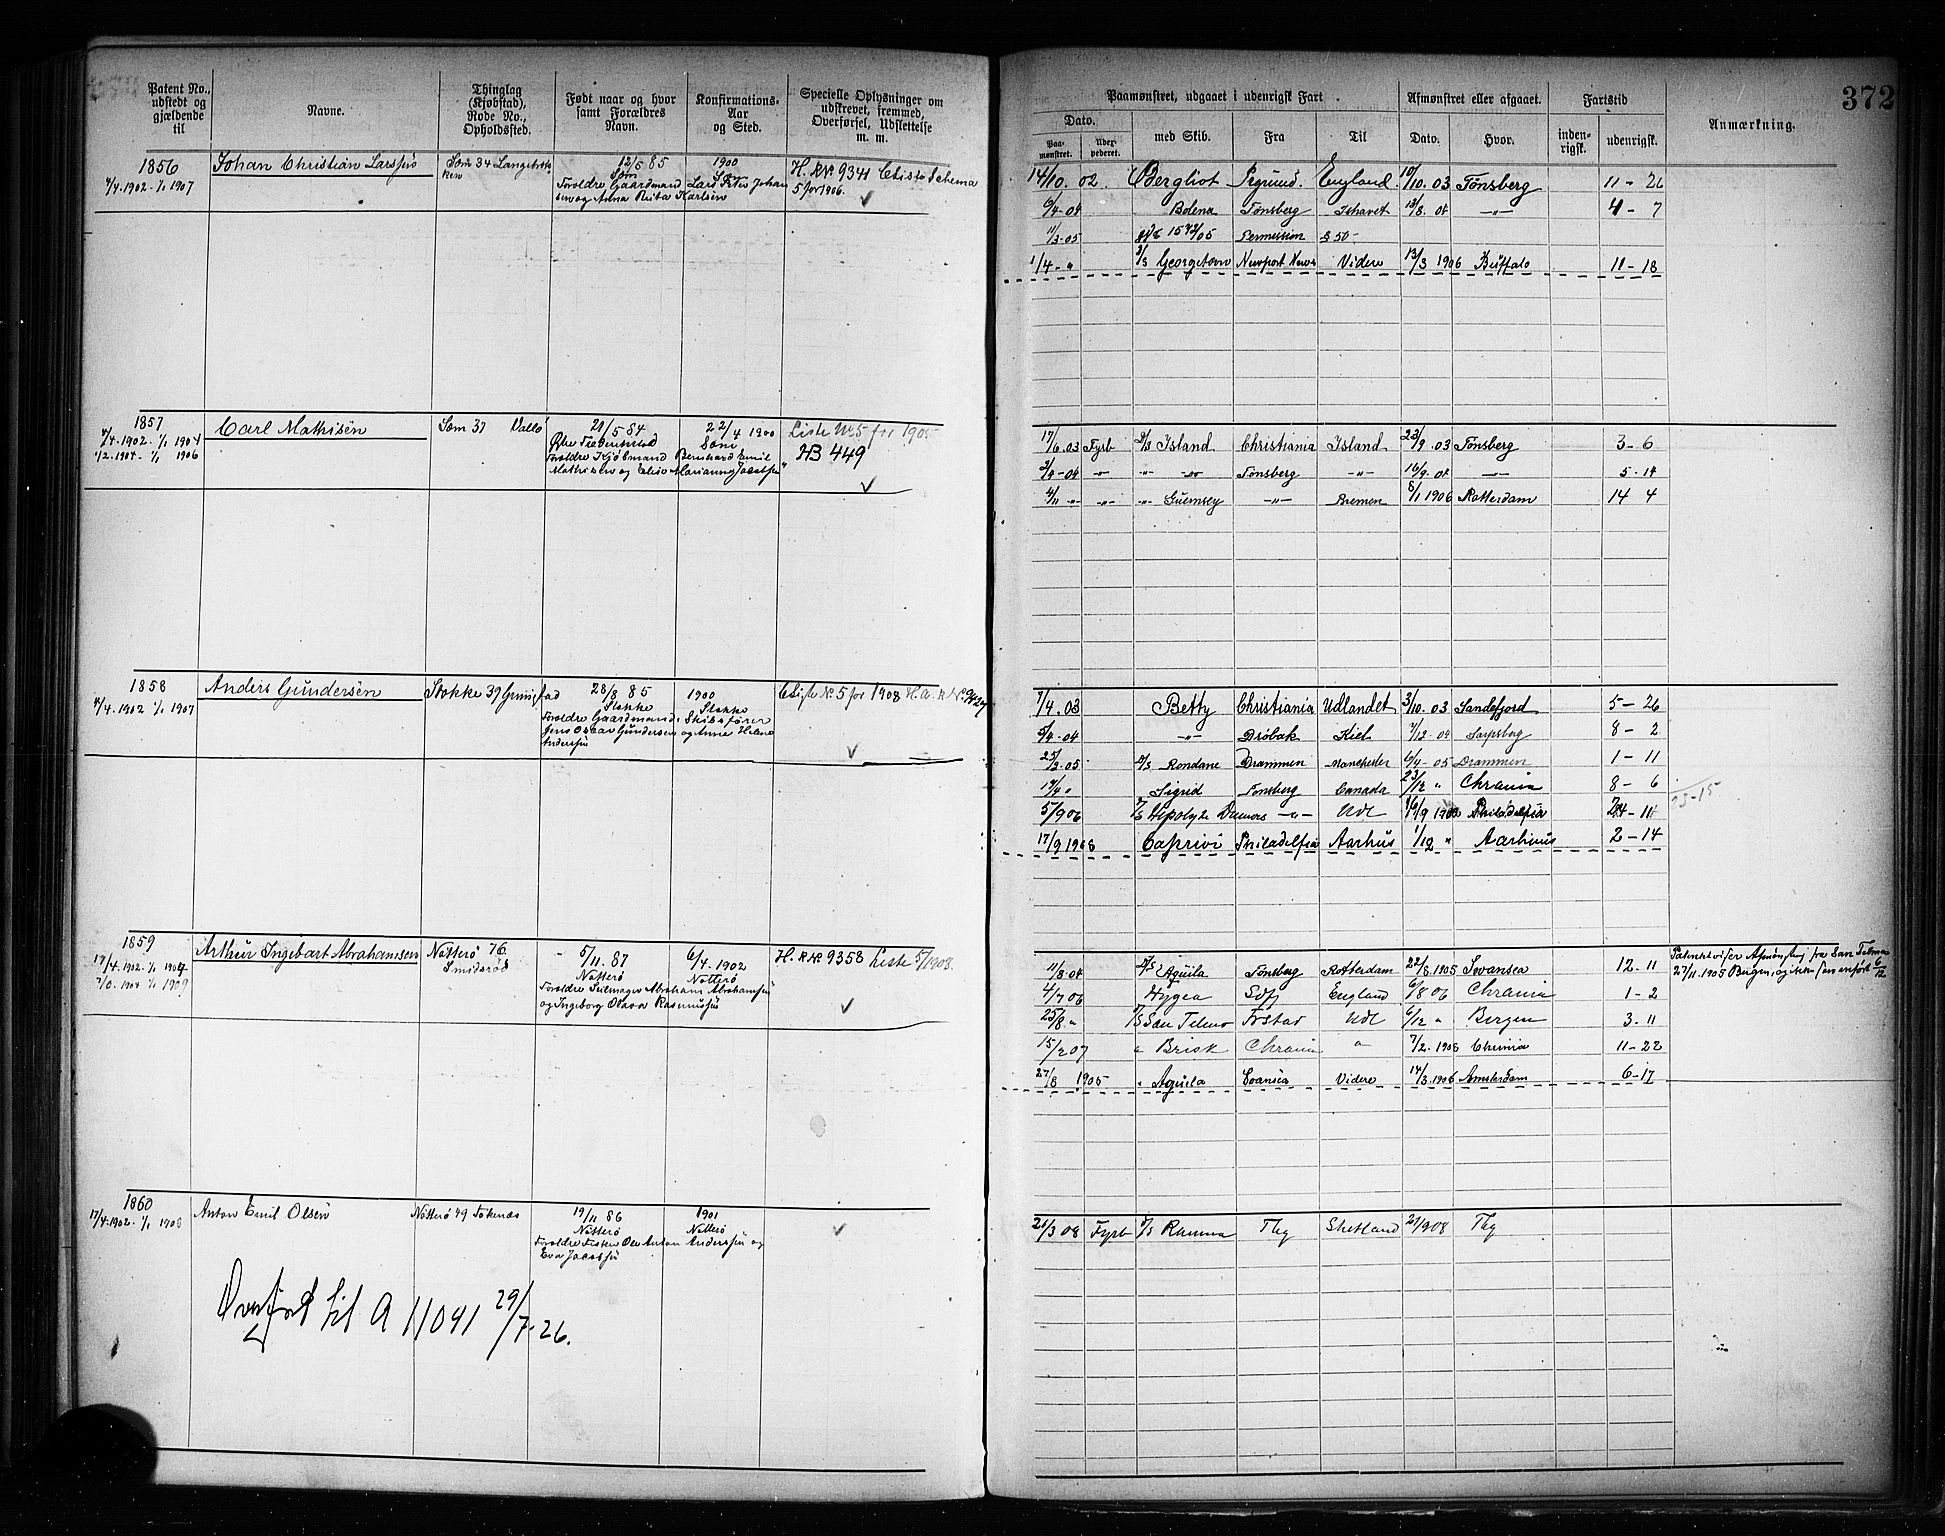 372
Patent No., udstedt og gjældende til
Navne.
Thinglag (Kjøbstad), Rode No., Opholdssted.
Født naar og hvor samt Forældres Navn.
Konfirmations-Aar og Sted.
Specielle Oplysninger om udskrevet, fremmed, Overførsel, Udslettelse m. m.
Paamønstret, udgaaet i udenrigsk Fart
Afmønstret eller afgaaet.
Fartstid
Anmærkning.
Dato.
Paa-mønstret.
med Skib.
Fra
Til
Dato.
Hvor.
inden-rigsk.
udenrigsk.
1856 Johan Christian Larssen Sem 34 12/5 85 1900 H. R No 9341
4/4.1902-1/1 1907 Sem
Forældre Gaardmand 5 for 1906.
og Anna Karlsen
14/10. 02 Bergliot England 10/10. 03 Tønsberg 11-26
6/4-04 Bolena Tønsberg Ishavet 13/8 04 -"- 4-7
11/3-05 Permission
1/4-" Georgetown Newport News Videre 13/3 1906 Buffalo 11-18
1857 Carl Mathisen Sem 37 Vallø 21/5 84 22/4 1900 Liste No 5 for 1905
4/4-1902-1/1 1904 Sem HB 449
1/2.1904-1/1 1906 Forældre Kjøbmand Bernhard Emil
Mathisen og Elise Marianne Jacobsen
17/6.03 Fyrb D/S Island Christiania Island 23/9.03 Tønsberg 3-6
2/4-04 -"- -"- -"- Tønsberg -"- 16/9.04 -"- 5-14
4/11 -"- -"- -"- Guernsey -"- Bremen 8/1 1906 Rotterdam 14 4
1858 Anders Gundersen Stokke 39 28/8 85 1900 Liste No 5 for 1908 H.A.
4/4-1902 1/1 1907 Stokke Stokke
Forældre Gaardmand. Skibsfører
Jens Oscar Gundersen og Anne Helene
Andersen
7/4.03 Betty Christiania Udlandet 3/10.03 Sandefjord 5-26
5/4-04 -"- Drøbak Kiel 7/12-04 Sarpsborg 8-2
25/3.05 D/S Rondane Drammen Manchester 6/4-05 Drammen 1-11
17/4 " Sigrid Tønsberg Canada 23/12 " Chrania 8-6
5/9 06 Hipolyte Dumois -"- Udl Philadelfia
23-15
17/9 1908 Caprivi Philadelfia Aarhus 1/12 " Aarhuus 2-14
1859 Arthur Ingebart Abrahamsen Nøtterø 76 5/11.87 6/4.1902 H. R No 9358 Liste 5/1908.
17/4-1902-1/1 1904 Smidsrød Nøtterø Nøtterø
1/1 1909 Forældre Seilmager Abraham Abrahamsen
og Ingeborg Olava Rasmussen
11/8-04 D/S Aquila Tønsberg Rotterdam 22/8.1905 Svansea 12.11
27/11.1905 Bergen, og ikke som anført 6/12
4/7 06 Hygea England 6/8 06 Chrania 1-2
25/8 " San Telmo Frstad Udl 6/12 " Bergen 3.11
15/2 07 " Brisk Chrania " 7/2.1908 Chrania 11-22
27/8 1905 " Aquila Svansea Videre 14/3.1906 Amsterdam 6-17
1860 Anton Emil Olsen Nøtterø 49 19/11 86 1901
17/4-1902-1/1 1908 Nøtterø Nøtterø
Forældre Fisker Ole Anton Anderssen og
Eva Jacobsen
21/3 08 Fyrb D/S Ramma Tbg Shetland 21/9 08 Tbg
Overført til A 11041 29/7-26.